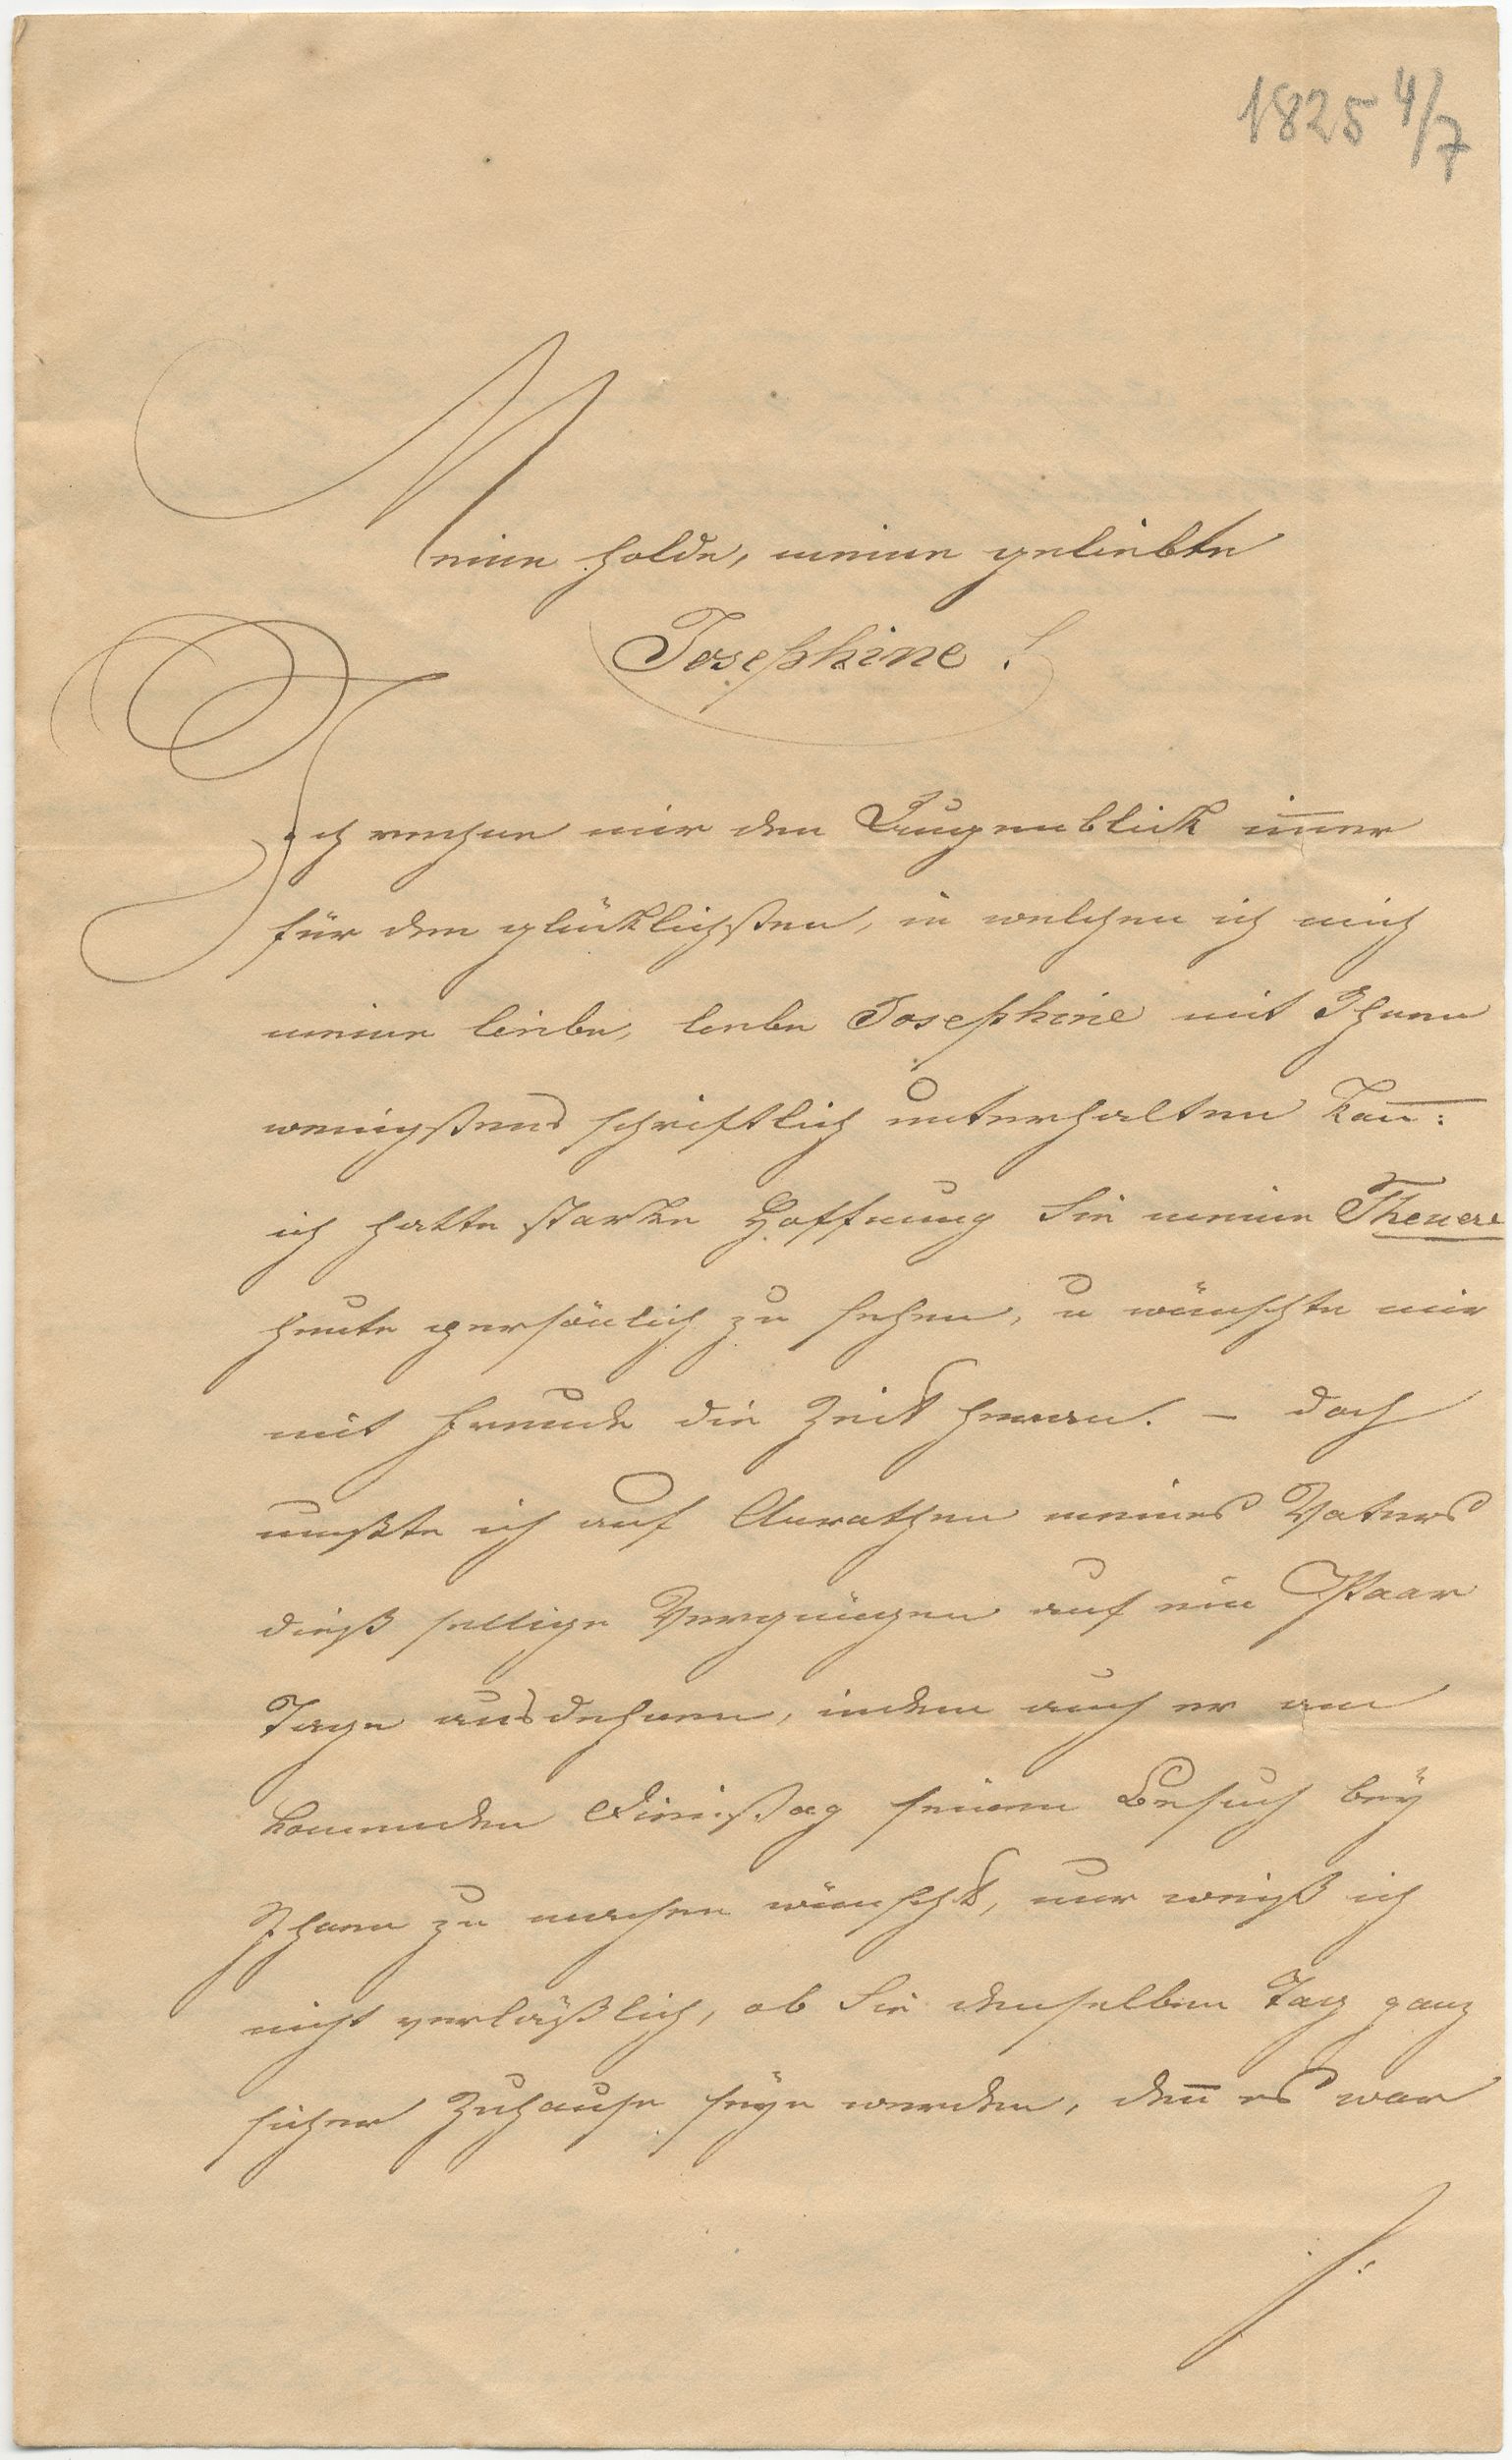 1825 4/7
Meine holde, meine geliebte
Josephine!
Ich rechne mir den Augenblick im̅er
für den glücklichsten, in welchen ich mich
meine liebe, liebe Josephine mit Ihnen
wenigstens schriftlich unterhalten kan̅:
ich hatte starke Hoffnung Sie meine Theuere
heute persönlich zu sehen, u wünschte mir
mit Freude die Zeit heran. – doch
mußte ich auf Anrathen meines Vaters
dieß seelige Vergnügen auf ein Paar
Tage ausdehnen, indem auch er am
kommenden Dienstag seinen Besuch bey
Ihnen zu machen wünscht, nur weiß ich
nicht verläßlich, ob Sie denselben Tag ganz
sicher Zuhause seyn werden, den̅ es war